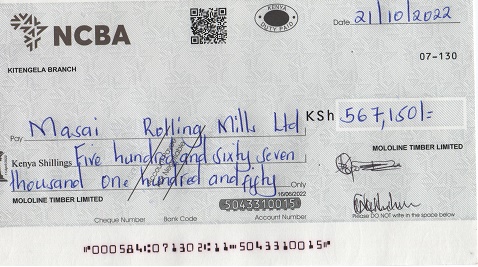 NCBA
KENYA
DUTY PAID
Date 21/10/2022
07-130
KITENGELA BRANCH
Pay Masai Rolling Mills Ltd KSh 567,150/=
Kenya Shillings Five hundred and sixty seven
thousand one hundred and fifty Only
MOLOLINE TIMBER LIMITED
MOLOLINE TIMBER LIMITED
16/06/2022
5043310015
Cheque Number Bank Code Account Number
Please DO NOT write in the space below
"000584"07130 2"11"5043310015"